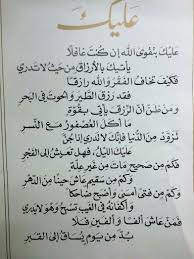 عليك
عليك بتقوى الله إن كنت غافلاً
يأتيك بالأرزاق من حيث لا تدري
فكيف تخاف الفقر والله رازقا
فقد رزق الطير والحوت في البحر
ومن ظن أن الرزق يأتي بقوة
ما أكل العصفور مع النسر
تزود من الدنيا فإنك لا تدري إذا جن
عليك الليل، فهل تعيش إلى الفجر
فكم من صحيح مات من غير علة
وكم من سقيم عاش حيناً من الدهر
وكم من فتى أمسى وأصبح ضاحكا
وأكفانه في الغيب تنسج وهو لا يدري
فمن عاش ألفا وألفين فلا
بد من يوم يساق إلى القبر